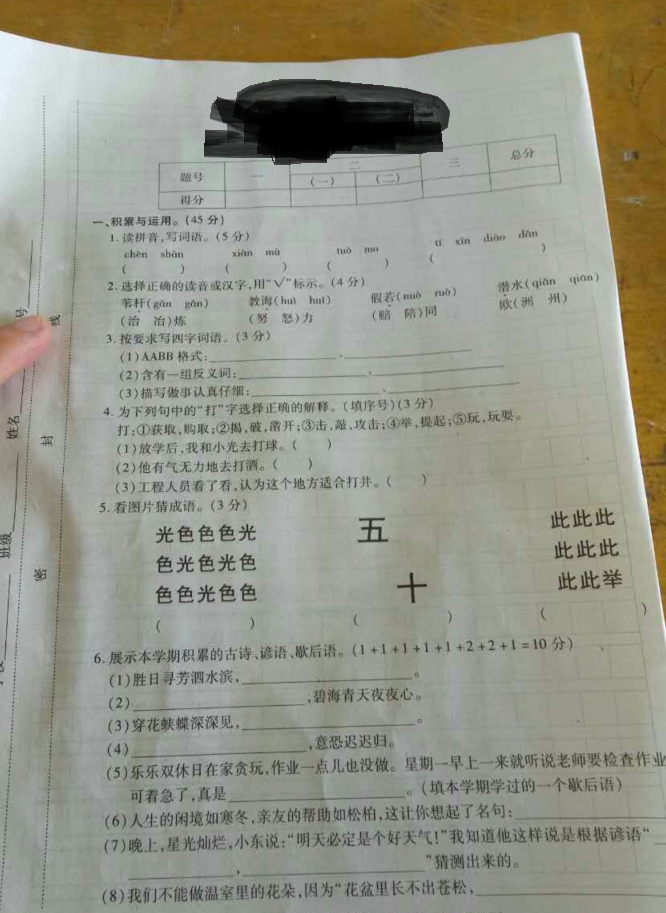 题号 一 二 三 总分
(一) (二)
得分
一、积累与运用。(45 分)
1. 读拼音,写词语。(5 分)
chèn shān xiàn mù tuò mo tī xīn diào dǎn
( ) ( ) ( ) ( )
2. 选择正确的读音或汉字,用“√”标示。(4 分)
苇秆(gān gǎn) 教诲(huì huǐ) 假若(nuò ruò) 潜水(qiǎn qián)
(治 冶)炼 (努 怒)力 (赔 陪)同 欧(洲 州)
3. 按要求写四字词语。(3 分)
(1)AABB 格式:、
(2)含有一组反义词:、
(3)描写做事认真仔细:、
4. 为下列句中的“打”字选择正确的解释。(填序号)(3 分)
打:①获取,购取;②揭,破,凿开;③击,敲,攻击;④举,提起;⑤玩,玩耍。
(1)放学后,我和小光去打球。( )
(2)他有气无力地去打酒。( )
(3)工程人员看了看,认为这个地方适合打井。( )
5. 看图片猜成语。(3 分)
光色色色光 五 此此此
色光色光色 此此此
色色光色色 十 此此举
( ) ( ) ( )
6. 展示本学期积累的古诗、谚语、歇后语。(1+1+1+1+1+2+2+1=10 分)
(1)胜日寻芳泗水滨,。
(2),碧海青天夜夜心。
(3)穿花蛱蝶深深见,。
(4),意恐迟迟归。
(5)乐乐双休日在家贪玩,作业一点儿也没做。星期一早上一来就听说老师要检查作业
可着急了,真是。(填本学期学过的一个歇后语)
(6)人生的困境如寒冬,亲友的帮助如松柏,这让你想起了名句:
(7)晚上,星光灿烂,小东说:“明天必定是个好天气!”我知道他这样说是根据谚语“
,”猜测出来的。
(8)我们不能做温室里的花朵,因为“花盆里长不出苍松,
号
姓名
班级
线
封
密